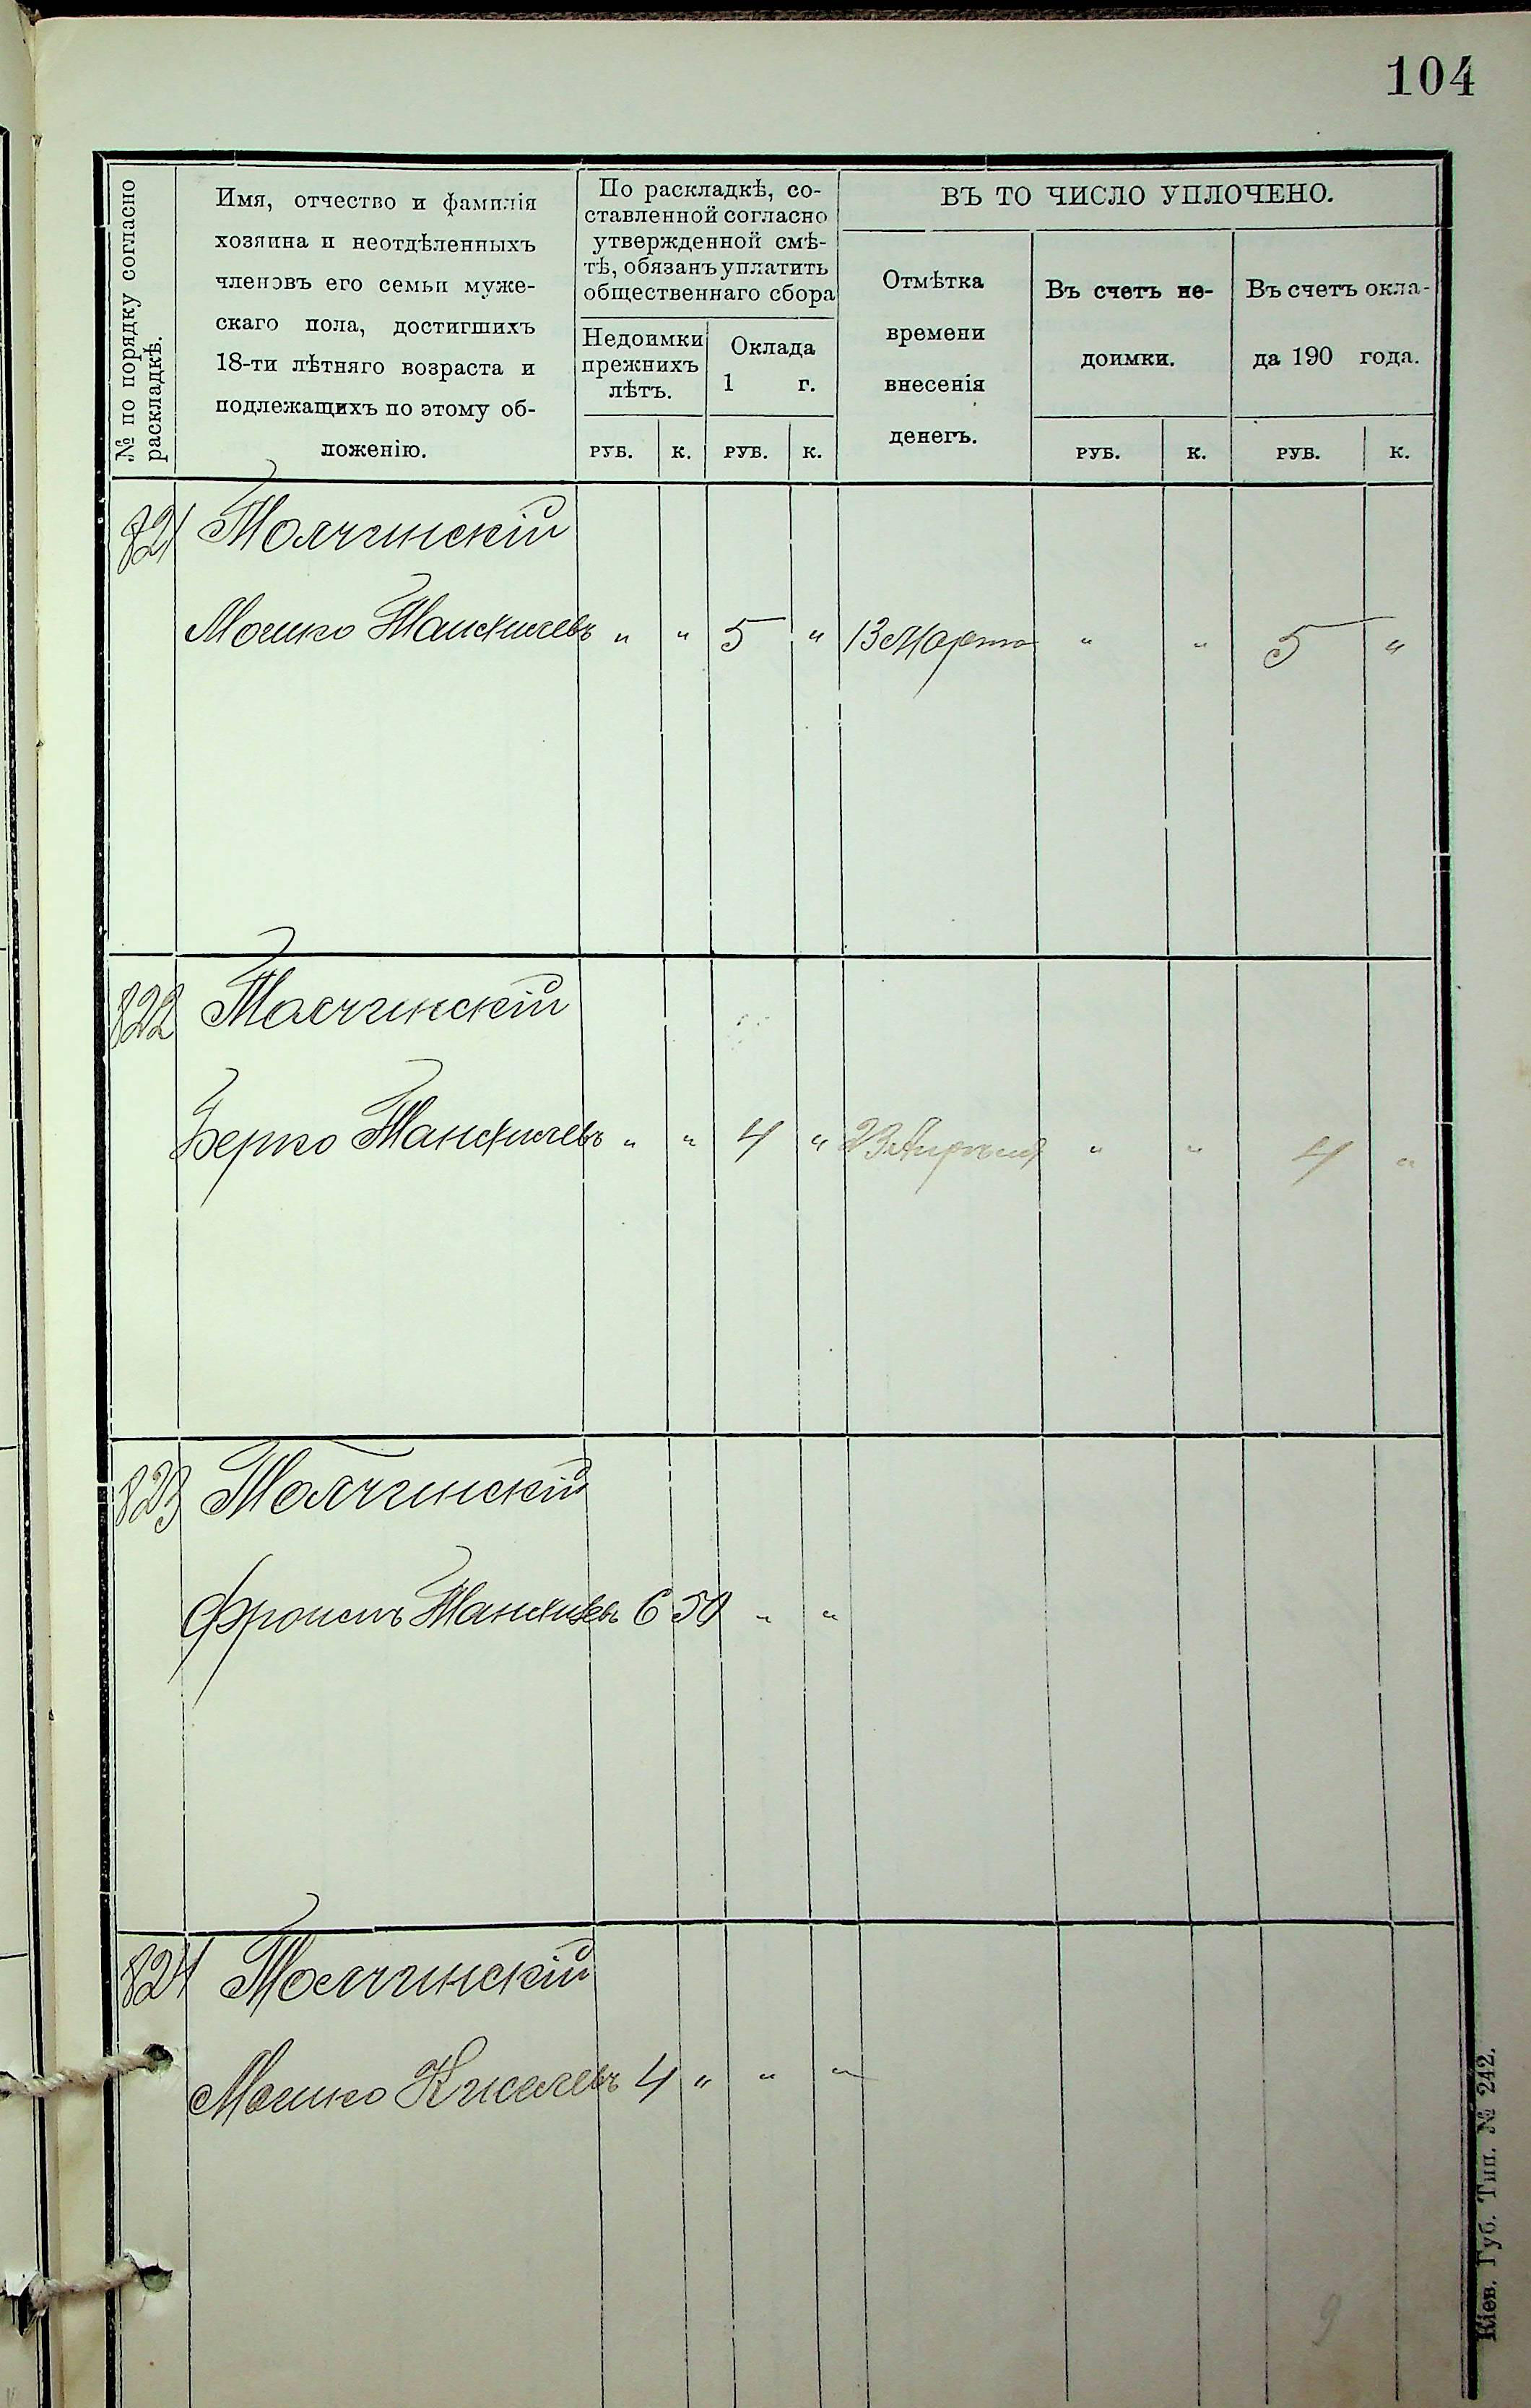 104
№ по порядку согласно
раскладкѣ.
Имя, отчество и фамилія
хозяина и неотдѣленныхъ
членовъ его семьи муже-
скаго пола, достигшихъ
18-ти лѣтняго возраста и
подлежащихъ по этому об-
ложенію.
По раскладкѣ, со-
ставленной согласно
утвержденной смѣ-
тѣ, обязанъ уплатить
общественнаго сбора
Недоимки
прежнихъ
лѣтъ.
Оклада
1 г.
ВЪ ТО ЧИСЛО УПЛОЧЕНО.
Отмѣтка
времени
внесенія
денегъ.
Въ счетъ не-
доимки.
Въ счетъ окла-
да 190 года.
РУБ. К. РУБ. К. РУБ. К. РУБ. К.
821 Толчинскій
Мошко Танхилевъ " " 5 " 13 Марта " " 5 "
822 Толчинскій
Берко Танхилевъ " " 4 " 23 Апрѣля " " 4 "
823 Толчинскій
Фроимъ 6 50 " "
824 Толчинскій
Мошко 4 " " "
9
Кіев. Губ. Тип. № 242.